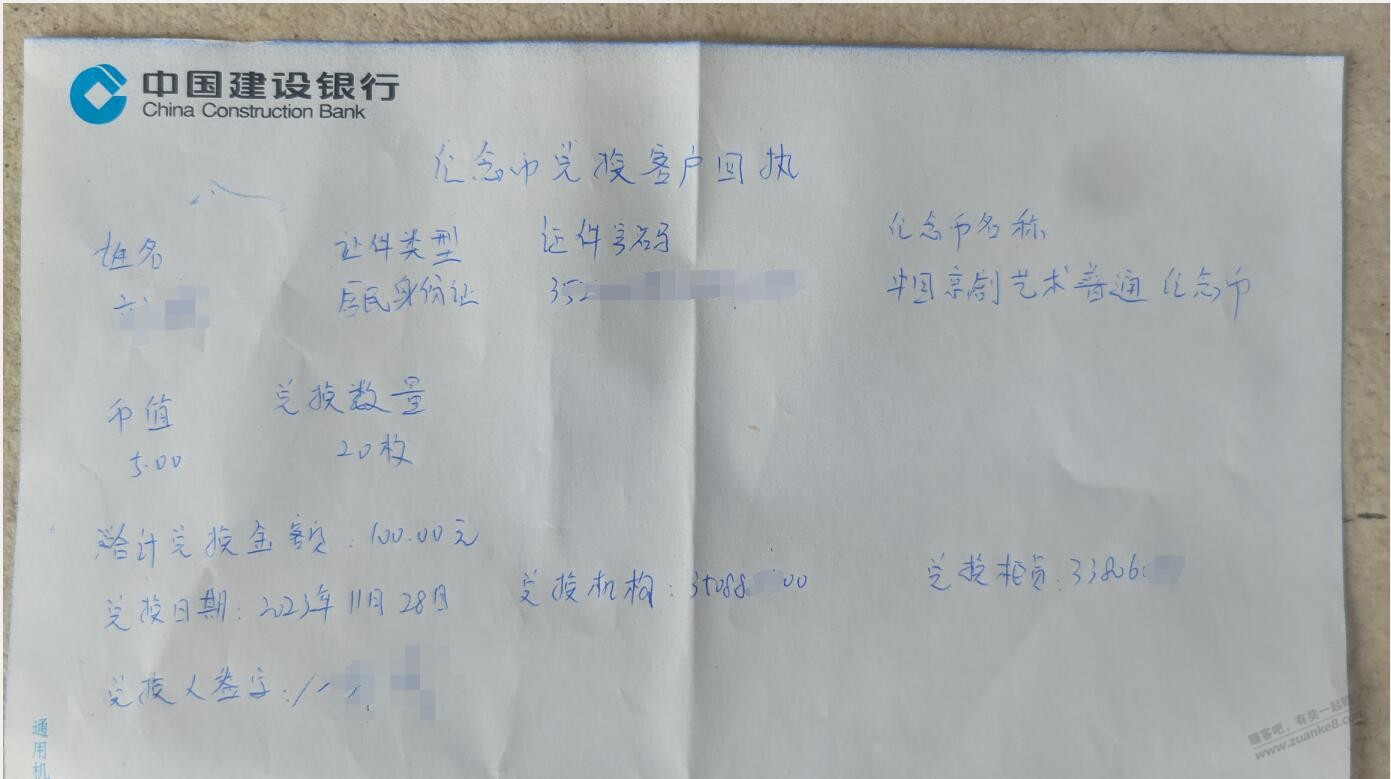 中国建设银行
China Construction Bank
纪念币兑换客户回执
姓名 证件类型 证件号码 纪念币名称
居民身份证 352 中国京剧艺术普通纪念币
币值 兑换数量
5.00 20枚
合计兑换金额：100.00元
兑换日期：2023年11月28日 兑换机构：35088 00 兑换柜员：33806
兑换人签字：
通用机
赚客吧，有奖一起赚
www.zuanke8.com